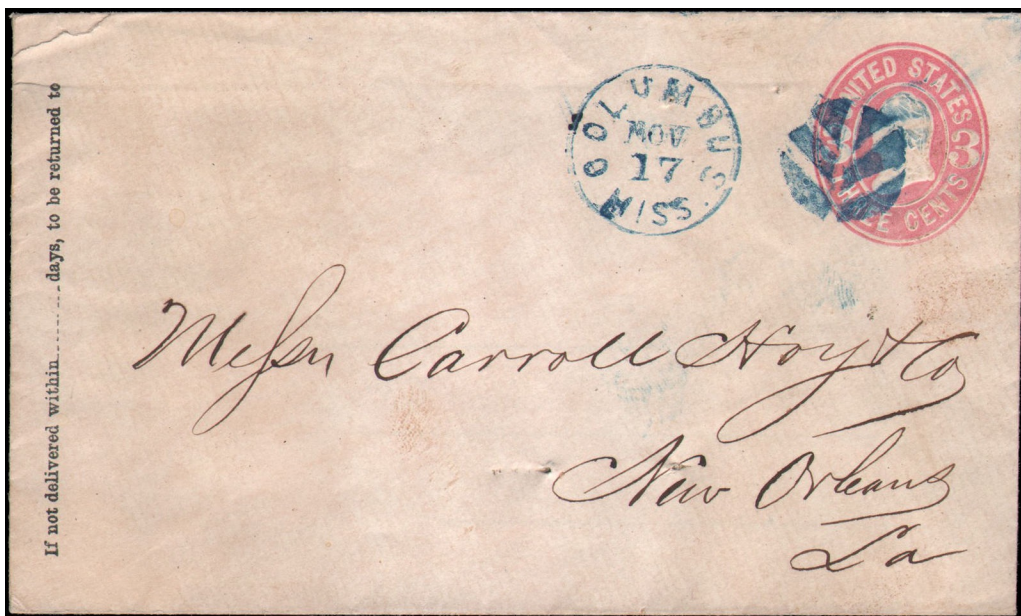 If not delivered within ........ days, to be returned to
COLUMBUS MISS.
NOV
17
UNITED STATES
3 3
THREE CENTS
Messrs Carroll Hoy & Co
New Orleans
La